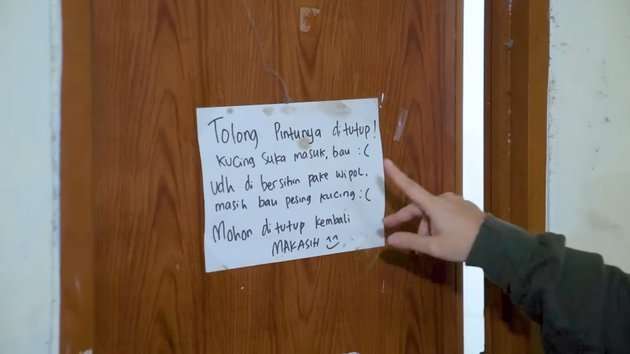 Tolong Pintunya ditutup!
Kucing suka masuk, bau :(
Udh di bersihin pake wipol,
masih bau pesing kucing :(
Mohon ditutup kembali
MAKASIH ^^